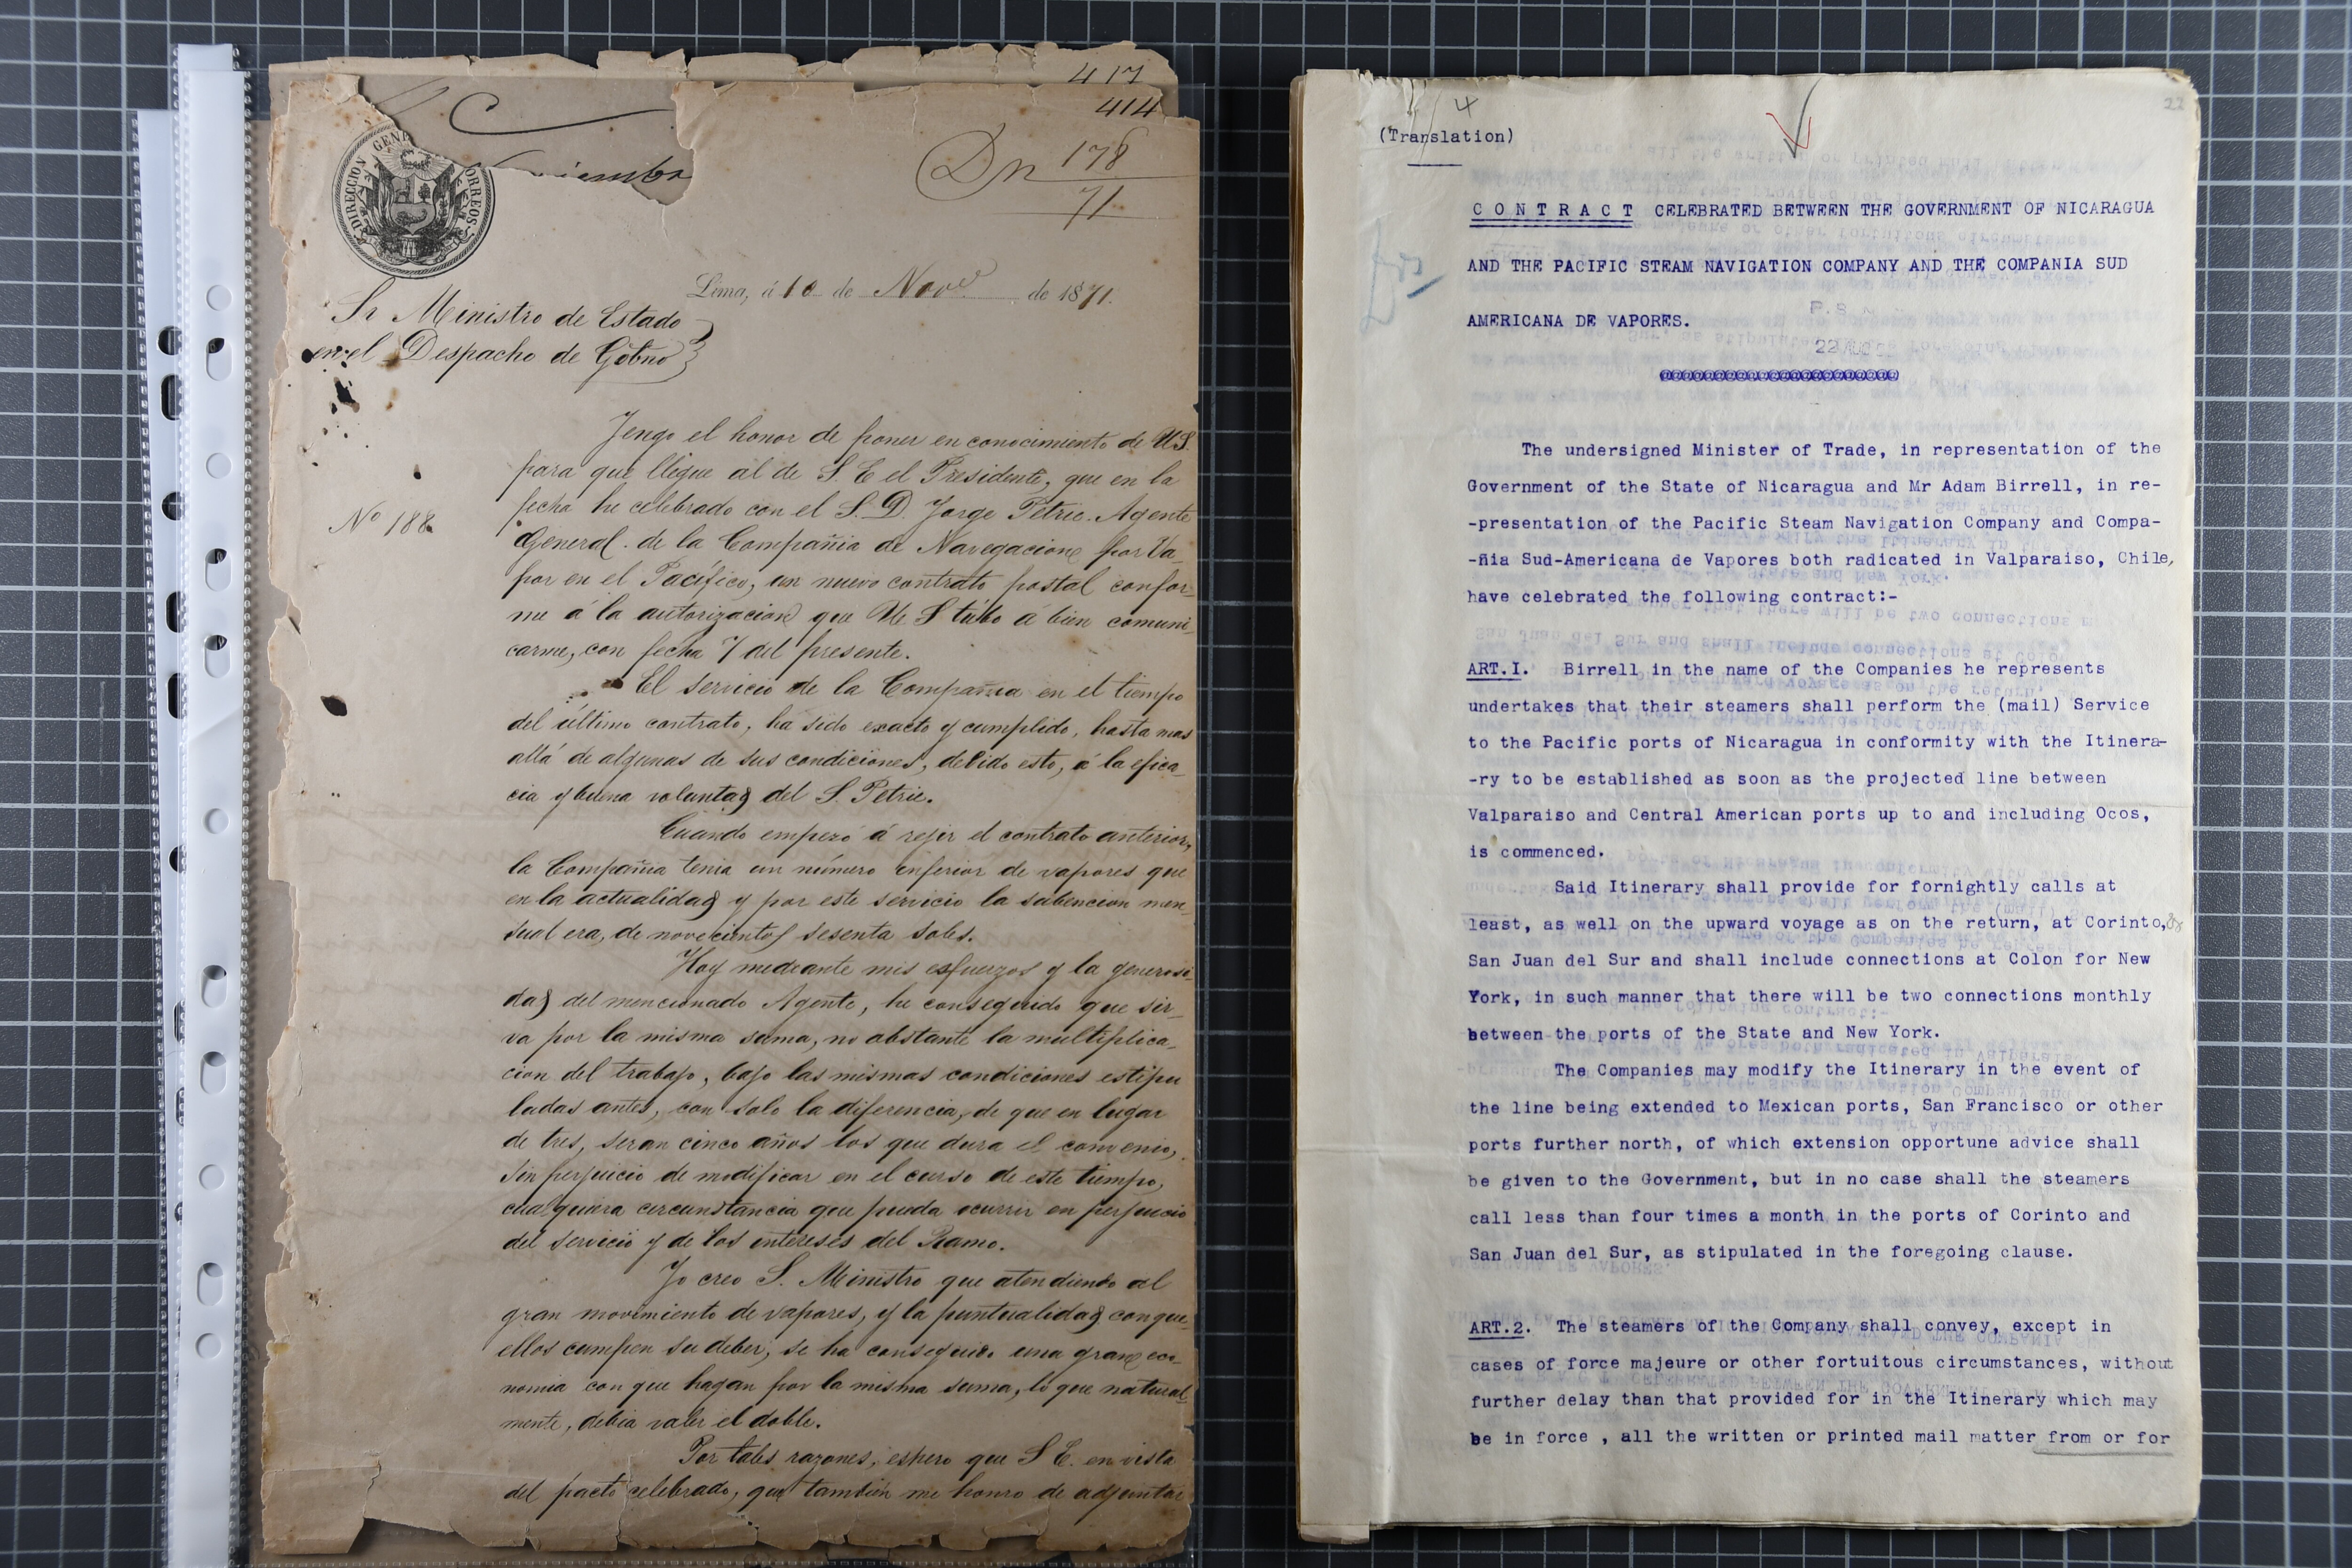 417
414
Dn 178
71
viembre
DIRECCION GENE ORREOS
Lima, á 10 de Nove de 1871.
Sr Ministro de Estado
en el Despacho de Gobno
Tengo el honor de poner en conocimiento de US.
para que llegue al de S. E el Presidente, que en la
Nº 188.
fecha he celebrado con el S. D. Jorge Petrie. Agente
General. de la Compañia de Navegacion por Va-
por en el Pacífico, un nuevo contrato postal confor-
me á la autorizacion que US tubo á bien comuni-
carme, con fecha 7 del presente.
El servicio de la Compañia en el tiempo
del último contrato, ha sido exacto y cumplido, hasta mas
allá de algunas de sus condiciones, debido esto, á la efica-
cia y buena voluntad del S. Petrie.
Cuando empezó á rejir el contrato anterior,
la Compañia tenia un número inferior de vapores que
en la actualidad y por este servicio la subencion men-
sual era, de novecientos sesenta soles.
Hoy mediante mis esfuerzos y la generosi-
dad del mencionado Agente, he conseguido que sir-
va por la misma suma, no obstante la multiplica-
cion del trabajo, bajo las mismas condiciones estipu
ladas antes, con solo la diferencia, de que en lugar
de tres, seran cinco años los que dura el convenio,
sin perjuicio de modificar en el curso de este tiempo,
cualquiera circunstancia que pueda ocurrir en perjuicio
del servicio y de los intereses del Ramo.
Yo creo S. Ministro que atendiendo al
gran movimiento de vapores, y la puntualidad con que
ellos cumpen su deber, se ha conseguido una gran eco-
nomia con que hagan por la misma suma, lo que natural-
mente, debia valer el doble.
Por tales razones, espero que S E. en vista
del pacto celebrado, que tambien me honro de adjuntar
22
4
(Translation)
CONTRACT CELEBRATED BETWEEN THE GOVERNMENT OF NICARAGUA
AND THE PACIFIC STEAM NAVIGATION COMPANY AND THE COMPANIA SUD
P.S.N.
AMERICANA DE VAPORES.
22 AUG
@@@@@@@@@@@@@@@@@@@@@@
The undersigned Minister of Trade, in representation of the
Government of the State of Nicaragua and Mr Adam Birrell, in re-
-presentation of the Pacific Steam Navigation Company and Compa-
-ñia Sud-Americana de Vapores both radicated in Valparaiso, Chile,
have celebrated the following contract:-
ART.I. Birrell in the name of the Companies he represents
undertakes that their steamers shall perform the (mail) Service
to the Pacific ports of Nicaragua in conformity with the Itinera-
-ry to be established as soon as the projected line between
Valparaiso and Central American ports up to and including Ocos,
is commenced.
Said Itinerary shall provide for fornightly calls at
least, as well on the upward voyage as on the return, at Corinto, &
San Juan del Sur and shall include connections at Colon for New
York, in such manner that there will be two connections monthly
between the ports of the State and New York.
The Companies may modify the Itinerary in the event of
the line being extended to Mexican ports, San Francisco or other
ports further north, of which extension opportune advice shall
be given to the Government, but in no case shall the steamers
call less than four times a month in the ports of Corinto and
San Juan del Sur, as stipulated in the foregoing clause.
ART.2. The steamers of the Company shall convey, except in
cases of force majeure or other fortuitous circumstances, without
further delay than that provided for in the Itinerary which may
be in force , all the written or printed mail matter from or for